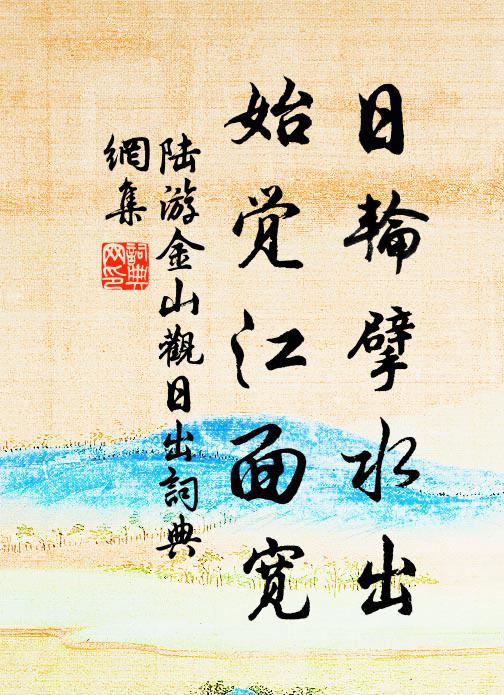 日輪擘水出
始觉江面宽
陆游金山觀日出詞典
網集
詞典
网印